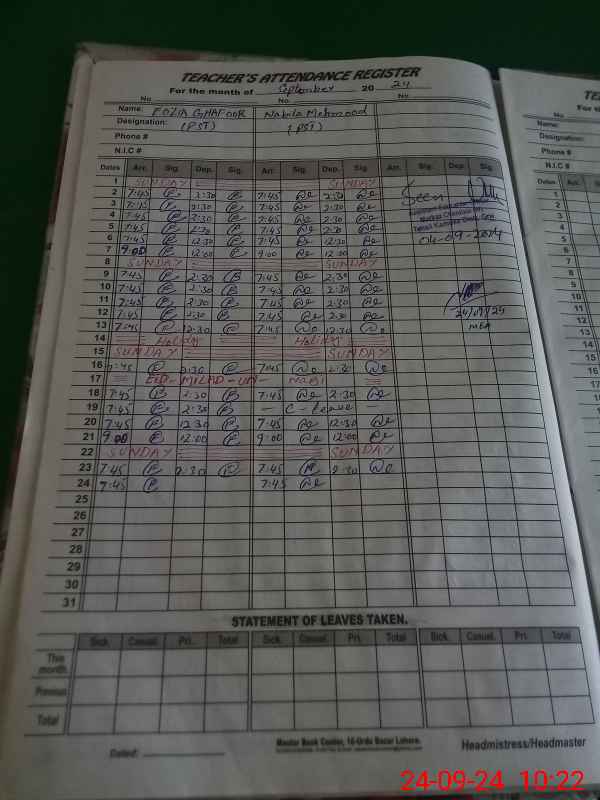 TEACHER'S ATTENDANCE REGISTER
For the month of September 20 24
No No. No.
Name: FOZIA GHAFOOR Nabila Mehmood
Designation: (PST) (PST)
Phone #
N.I.C #
Dates Arr. Sig. Dep. Sig. Arr. Sig. Dep. Sig. Arr. Sig. Dep. Sig.
1 SUNDAY SUNDAY
2 7:45 2:30 7:45 2:30
3 7:45 2:30 7:45 2:30 Seen
4 7:45 2:30 7:45 2:30
5 7:45 2:30 7:45 2:30
6 7:45 12:30 7:45 12:30
7 9:00 12:00 9:00 12:00 04-09-2024
8 SUNDAY SUNDAY
9 7:45 2:30 7:45 2:30
10 7:45 2:30 7:45 2:30
11 7:45 2:30 7:45 2:30
12 7:45 2:30 7:45 2:30
13 7:45 12:30 7:45 12:30 MEA
14 Holiday Holiday
15 SUNDAY SUNDAY
16 7:45 2:30 7:45 2:30
17 EID-MILAD-UN-NABI
18 7:45 2:30 7:45 2:30
19 7:45 2:30 - C-Leave -
20 7:45 12:30 7:45 12:30
21 9:00 12:00 9:00 12:00
22 SUNDAY SUNDAY
23 7:45 2:30 7:45 2:30
24 7:45 7:45
25
26
27
28
29
30
31
STATEMENT OF LEAVES TAKEN.
Sick. Casual. Pri. Total Sick. Casual. Pri. Total Sick. Casual. Pri. Total
This month
Previous
Total
Dated:
Master Book Center, 16-Urdu Bazar Lahore.
Headmistress/Headmaster
For the
No
Name:
Designation:
Phone #
N.I.C #
Dates Arr.
1
2
3
4
5
6
7
8
9
10
11
12
24-09-24 10:22